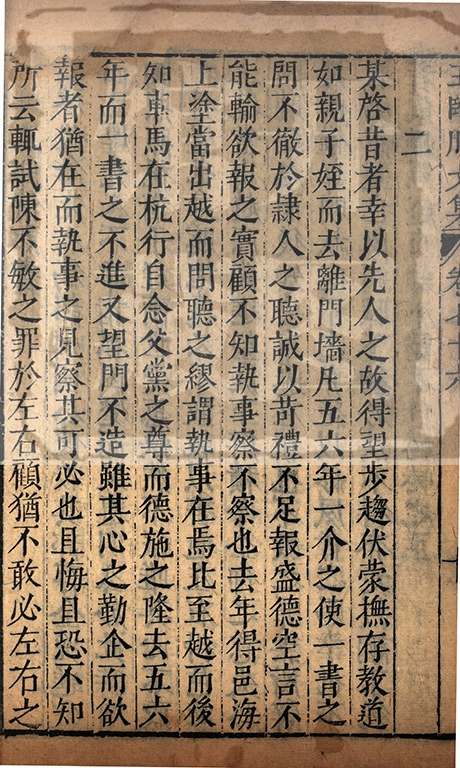 王臨川文集 卷七十六
二
某啓昔者幸以先人之故得望步趨伏蒙撫存教道
如親子姪而去離門墻凡五六年一介之使一書之
問不徹於隷人之聽誠以苛禮不足報盛德空言不
能輸欲報之實顧不知執事察不察也去年得邑海
上塗當出越而問聽之繆謂執事在焉比至越而後
知車馬在杭行自念父黨之尊而德施之隆去五六
年而一書之不進又望門不造雖其心之勤企而欲
報者猶在而執事之見察其可必也且悔且恐不知
所云輒試陳不敏之罪於左右顧猶不敢必左右之